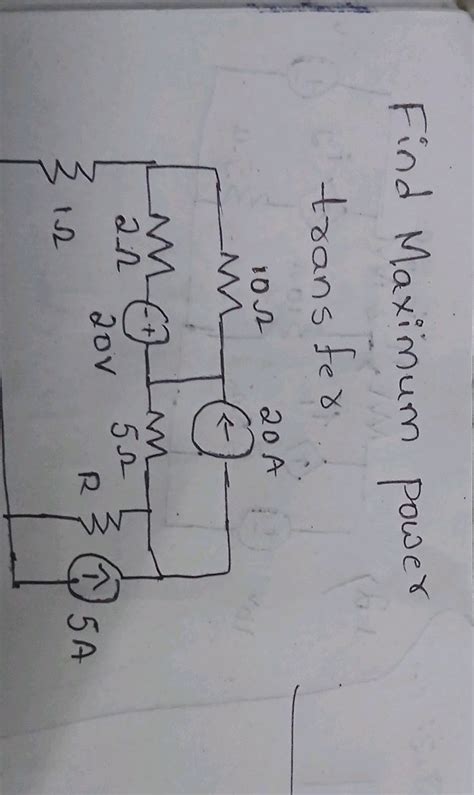 Find Maximum power
transfer.
10Ω
20A
←
2Ω
- +
20V
5Ω
1Ω
R
↑
5A